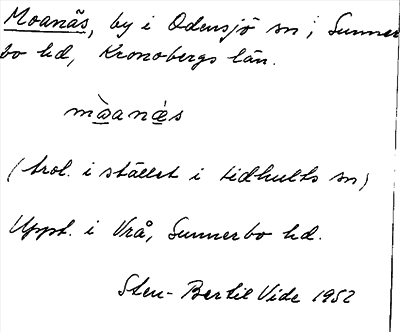 Moanäs, by i Odensjö sn, Sunner
bo hd, Kronobergs län.
mòanǽs
(trol. i stället i Lidhults sn)
Uppt. i Vrå, Sunnerbo hd.
Sten-Bertil Vide 1952